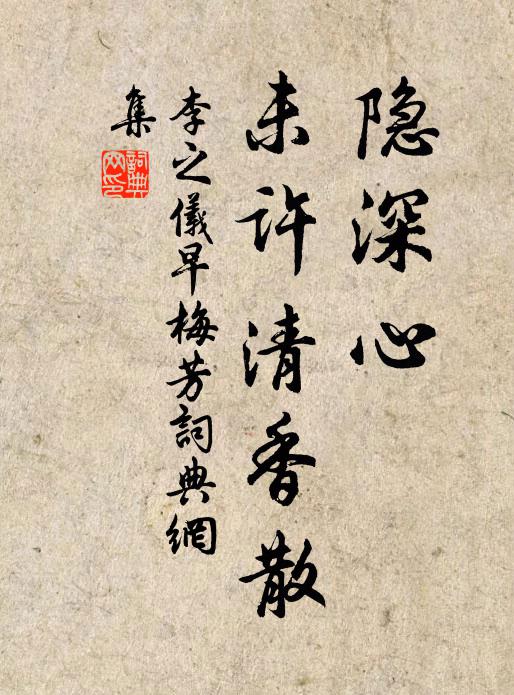 隐深心
未许清香散
李之儀早梅芳詞典網
集
詞典
网印